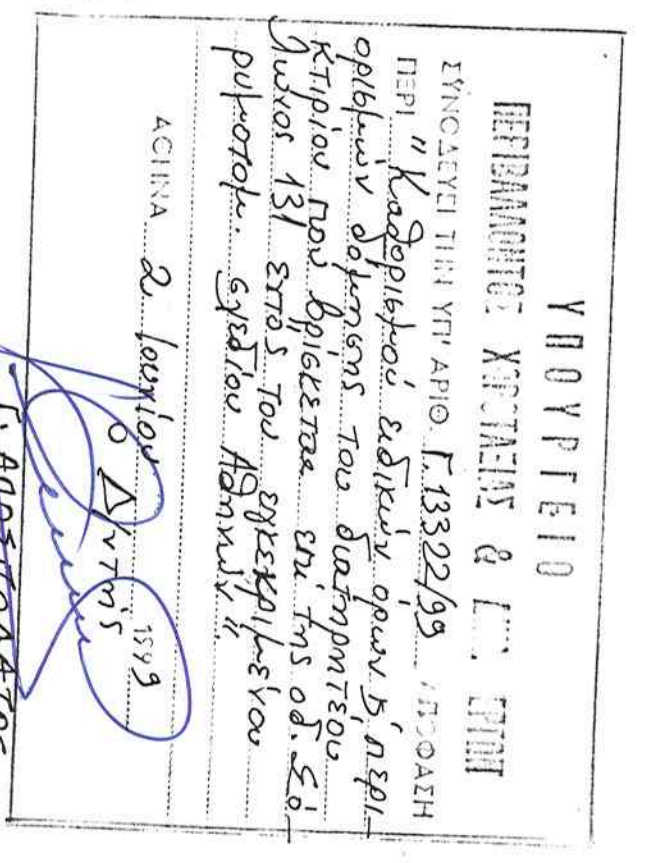 ΥΠΟΥΡΓΕΙΟ
ΠΕΡΙΒΑΛΛΟΝΤΟΣ ΧΩΡΟΤΑΞΙΑΣ & ΕΡΓΩΝ
ΣΥΝΟΔΕΥΕΙ ΤΗΝ ΥΠ' ΑΡΙΘ Γ.13322/99 ΑΠΟΦΑΣΗ
ΠΕΡΙ "Καθορισμού ειδικών όρων & περι-
ορισμών δόμησης του διατηρητέου
κτιρίου που βρίσκεται επί της οδ. Σό-
λωνος 131 εντός του εγκεκριμένου
ρυμοτομ. σχεδίου Αθηνών".
ΑΘΗΝΑ 2 Ιουνίου 1999
Ο Δ/ντής
Γ. ΑΠΟΣΤΟΛΑΤΟΣ